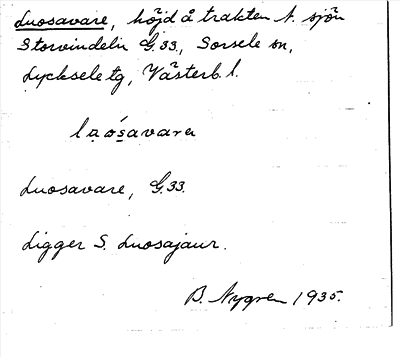 Luosavare, höjd å trakten N. sjön
Storvindeln G.33., Sorsele sn,
Lycksele tg, Västerb. l.
Luosavare, G.33.
Ligger S. Luosajaur.
B. Nygren 1935.